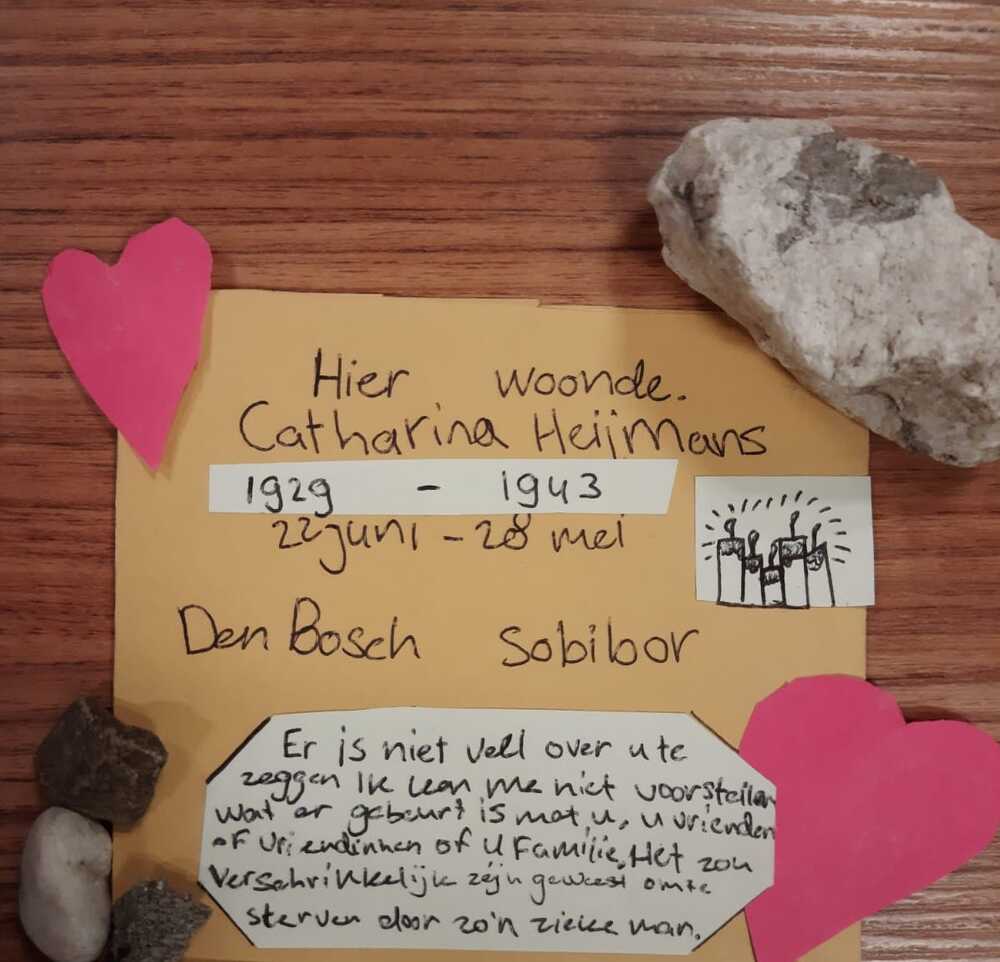 Hier woonde.
Catharina Heijmans
1929 - 1943
22 juni - 28 mei
Den Bosch Sobibor
Er is niet vell over u te
zeggen Ik kan me niet voorstellen
wat er gebeurt is met u, u vrienden
of vriendinnen of u Familie. Het zou
verschrikkelijk zéjn geweest om te
sterven door zo'n zieke man.